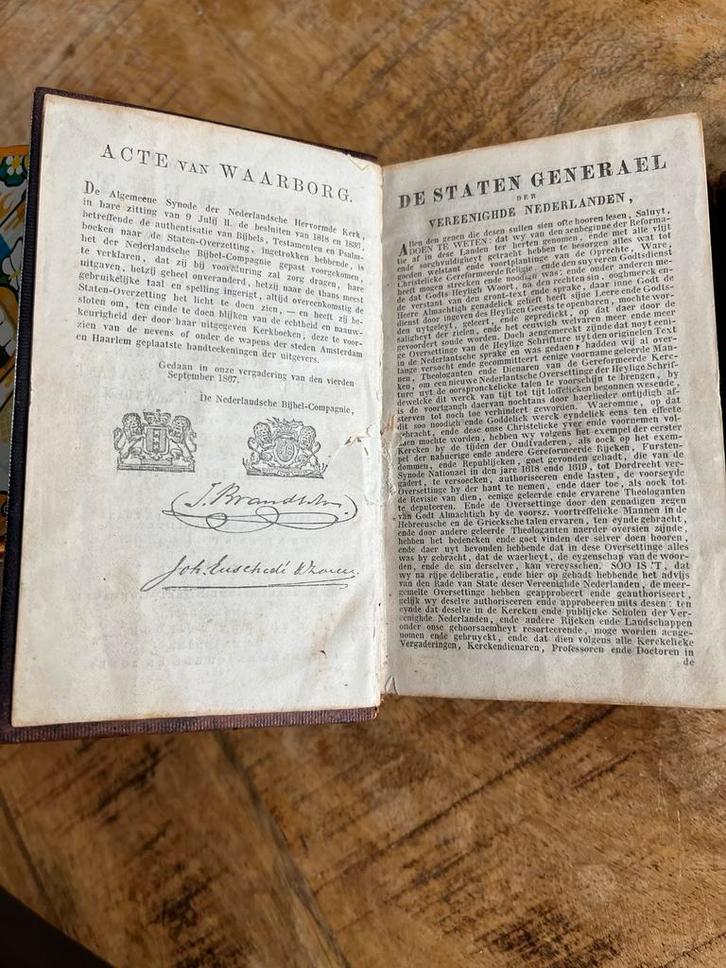 ACTE VAN WAARBORG.
De Algemeene Synode der Nederlandsche Hervormde Kerk,
in hare zitting van 9 Julij ll. de besluiten van 1818 en 1836,
betreffende de authentisatie van Bijbels, Testamenten en Psalm-
boeken naar de Staten-Overzetting, ingetrokken hebbende, is
het der Nederlandsche Bijbel-Compagnie gepast voorgekomen,
te verklaren, dat zij bij voortduring zal zorg dragen, hare
uitgaven, hetzij geheel onveranderd, hetzij naar de thans meest
gebruikelijke taal en spelling ingerigt, altijd overeenkomstig de
Staten-Overzetting het licht te doen zien, — en heeft zij be-
sloten om, ten einde te doen blijken van de echtheid en naauw-
keurigheid der door haar uitgegeven Kerkboeken, deze te voor-
zien van de nevens of onder de wapens der steden Amsterdam
en Haarlem geplaatste handteekeningen der uitgevers.
Gedaan in onze vergadering van den vierden
September 1867.
De Nederlandsche Bijbel-Compagnie,
J. Brandt &
Joh. Enschedé & Zonen.
DE STATEN GENERAEL
DER
VEREENIGHDE NEDERLANDEN,
Allen den genen die desen sullen sien ofte hooren lesen, Saluyt,
DOEN TE WETEN: dat wy van den aenbeginne der Reforma-
tie af in dese Landen ter herten genomen, ende met alle vlijt
ende sorchvuldigheyt getracht hebben te besorgen alles wat tot
godden welstant ende voortplantinge van de Oprechte, Ware,
Christelicke Gereformeerde Religie, ende den suyveren Godsdienst
heeft mogen strecken ende noodich was: ende onder anderen me-
de dat Godts Heyligh Woort, na den rechten sin, ooghmerck en-
de verstant van den gront-text ende sprake, daar inne Godt de
Heere Almachtigh genadelick gelieft heeft sijne Leere ende Godts-
dienst door ingeven des Heyligen Geests te openbaren, mochte wor-
den uytgeleyt, geleert, ende gepredikt, op dat daer door de
saligheyt der zielen, ende het eeuwigh welvaren meer ende meer
gevordert soude worden. Doch aengemerckt zijnde dat noyt eeni-
ge Oversettinge van de Heylige Schrifture uyt den originelen Text
in de Nederlantsche sprake en was gedaen; hadden wij al over-
lange versocht ende gecommitteert eenige voorname geleerde Man-
nen, Theologanten ende Dienaren van de Gereformeerde Kerc-
ken, om een nieuwe Nederlantsche Oversettinge der Heylige Schrif-
ture uyt de oorspronckelicke talen te voorschijn te brengen, by
dewelcke dit werck van tijt tot tijt loffelicken begonnen wesende,
is de voortgangh daervan nochtans door haerlieder ontijdigh af-
sterven tot noch toe verhindert geworden. Waeromme, op dat
dit soo noodigh ende Goddelick werck eyndelick eens ten effecte
gebracht, ende dese onse Christelicke yver ende voornemen vol-
daen mochte worden, hebben wy volgens het exempel der eerster
Kercken by de tijden der Oudtvaderen, als oock op het exem-
pel der naburige ende andere Gereformeerde Rijcken, Fursten-
dommen, ende Republijcken, goet gevonden gehadt, die van de
Synode Nationael in den jare 1618 ende 1619, tot Dordrecht ver-
gadert, te versoecken, authoriseren ende lasten, de voorseyde
Oversettinge by der hant te nemen, ende daer toe, als oock tot
de Revisie van dien, eenige geleerde ende ervarene Theologanten
te deputeeren. Ende de Oversettinge door den genadigen zegen
van Godt Almachtigh by de voorsz. voortreffelicke Mannen in de
Hebreeusche en de Griecksche talen ervaren, ten eynde gebracht,
ende door andere geleerde Theologanten naerder oversien zijnde,
hebben het bedencken ende goet vinden der selver doen hooren,
ende daer uyt bevonden hebbende dat in dese Oversettinge alles
was by gebracht, dat de waerheyt, de eygenschap van de woor-
den, ende de sin derselver, kan vereysschen. SOO IS 'T, dat
wy na rijpe deliberatie, ende hier op gehadt hebbende het advijs
van den Rade van State deser Vereenighde Nederlanden, de meer-
gemelte Oversettinge hebben geapprobeert ende geauthoriseert,
gelijk wy deselve authoriseren ende approbeeren mits desen: ten
eynde dat deselve in de Kercken ende publijcke Scholen der Ver-
eenighde Nederlanden, ende andere Rijcken ende Landschappen
onder onse gehoorsaemheyt resorteerende, moge worden aenge-
nomen ende gebruyckt, ende dat dien volgens alle Kerckelicke
Vergaderingen, Kerckendienaren, Professoren ende Doctoren in
de